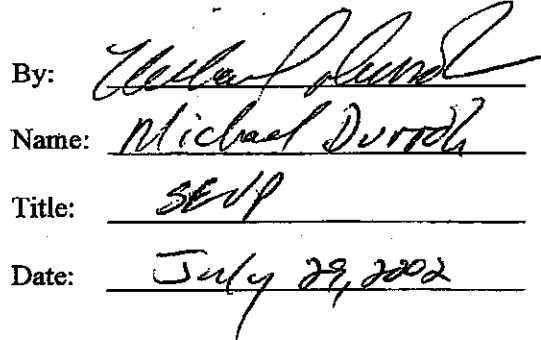 By:
Name: Michael Durrah
Title: SEVP
Date: July 29, 2002